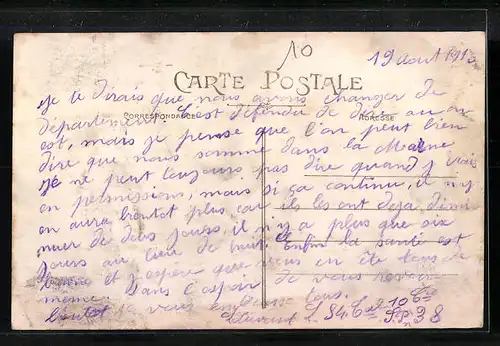 10
19 Aout 191
CARTE POSTALE
CORRESPONDANCE
ADRESSE
Je te dirais que nous avons changer de
département. C'est défendu de dire ou on
est, mais je pense que l'on peut bien
dire que nous somme dans la Marne
je ne peut toujours pas dire quand j irais
en permissions, mais si ça continue, il n'y
en aura bientot plus car ils les ont deja dimi
nuer de deux jours, il n'y a plus que six
jours au lieu de huit. Enfin la santé est
bonne et j'espère que vous en ête tous de
meme. Dans l'espoir de vous revoir
bientot je vous embrasse tous.
Laurent L 84. 10 Cie
S.P. 98